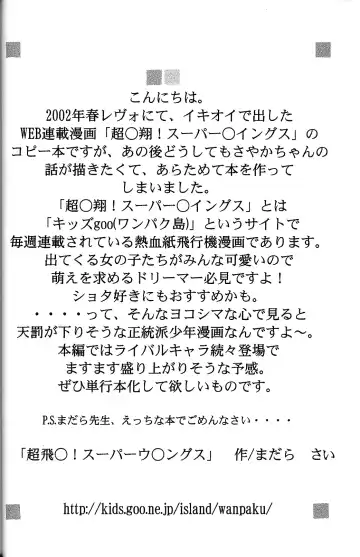 こんにちは。
2002年春レヴォにて、イキオイで出した
WEB連載漫画「超〇翔！スーパー〇イングス」の
コピー本ですが、あの後どうしてもさやかちゃんの
話が描きたくて、あらためて本を作って
しまいました。
「超〇翔！スーパー〇イングス」とは
「キッズgoo(ワンパク島)」というサイトで
毎週連載されている熱血紙飛行機漫画であります。
出てくる女の子たちがみんな可愛いので
萌えを求めるドリーマー必見ですよ！
ショタ好きにもおすすめかも。
・・・・って、そんなヨコシマな心で見ると
天罰が下りそうな正統派少年漫画なんですよ～。
本編ではライバルキャラ続々登場で
ますます盛り上がりそうな予感。
ぜひ単行本化して欲しいものです。
P.S.まだら先生、えっちな本でごめんなさい・・・・
「超飛〇！スーパーウ〇ングス」　作/まだら　さい
http://kids.goo.ne.jp/island/wanpaku/